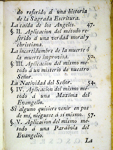 do referido á una historia
de la Sagrada Escritura.
La caida de los Angeles. 47.
§ II. Aplicacion del método re-
ferido á una verdad moral y
christiana.
La incertidumbre de la muerte ó
la muerte imprevista. 50.
§ III. Aplicacion del mismo méto-
do á un misterio de nuestro
Señor.
La Natividad del Señor. 54.
§ IV. Aplicacion del mismo mé-
todo á una Máxima del
Evangelio.
Si alguno quisiere venir en pos
de mí, nieguese á sí mismo. 57.
§ V. Aplicacion del mismo mé-
todo á una Parábola del
Evangelio.
La